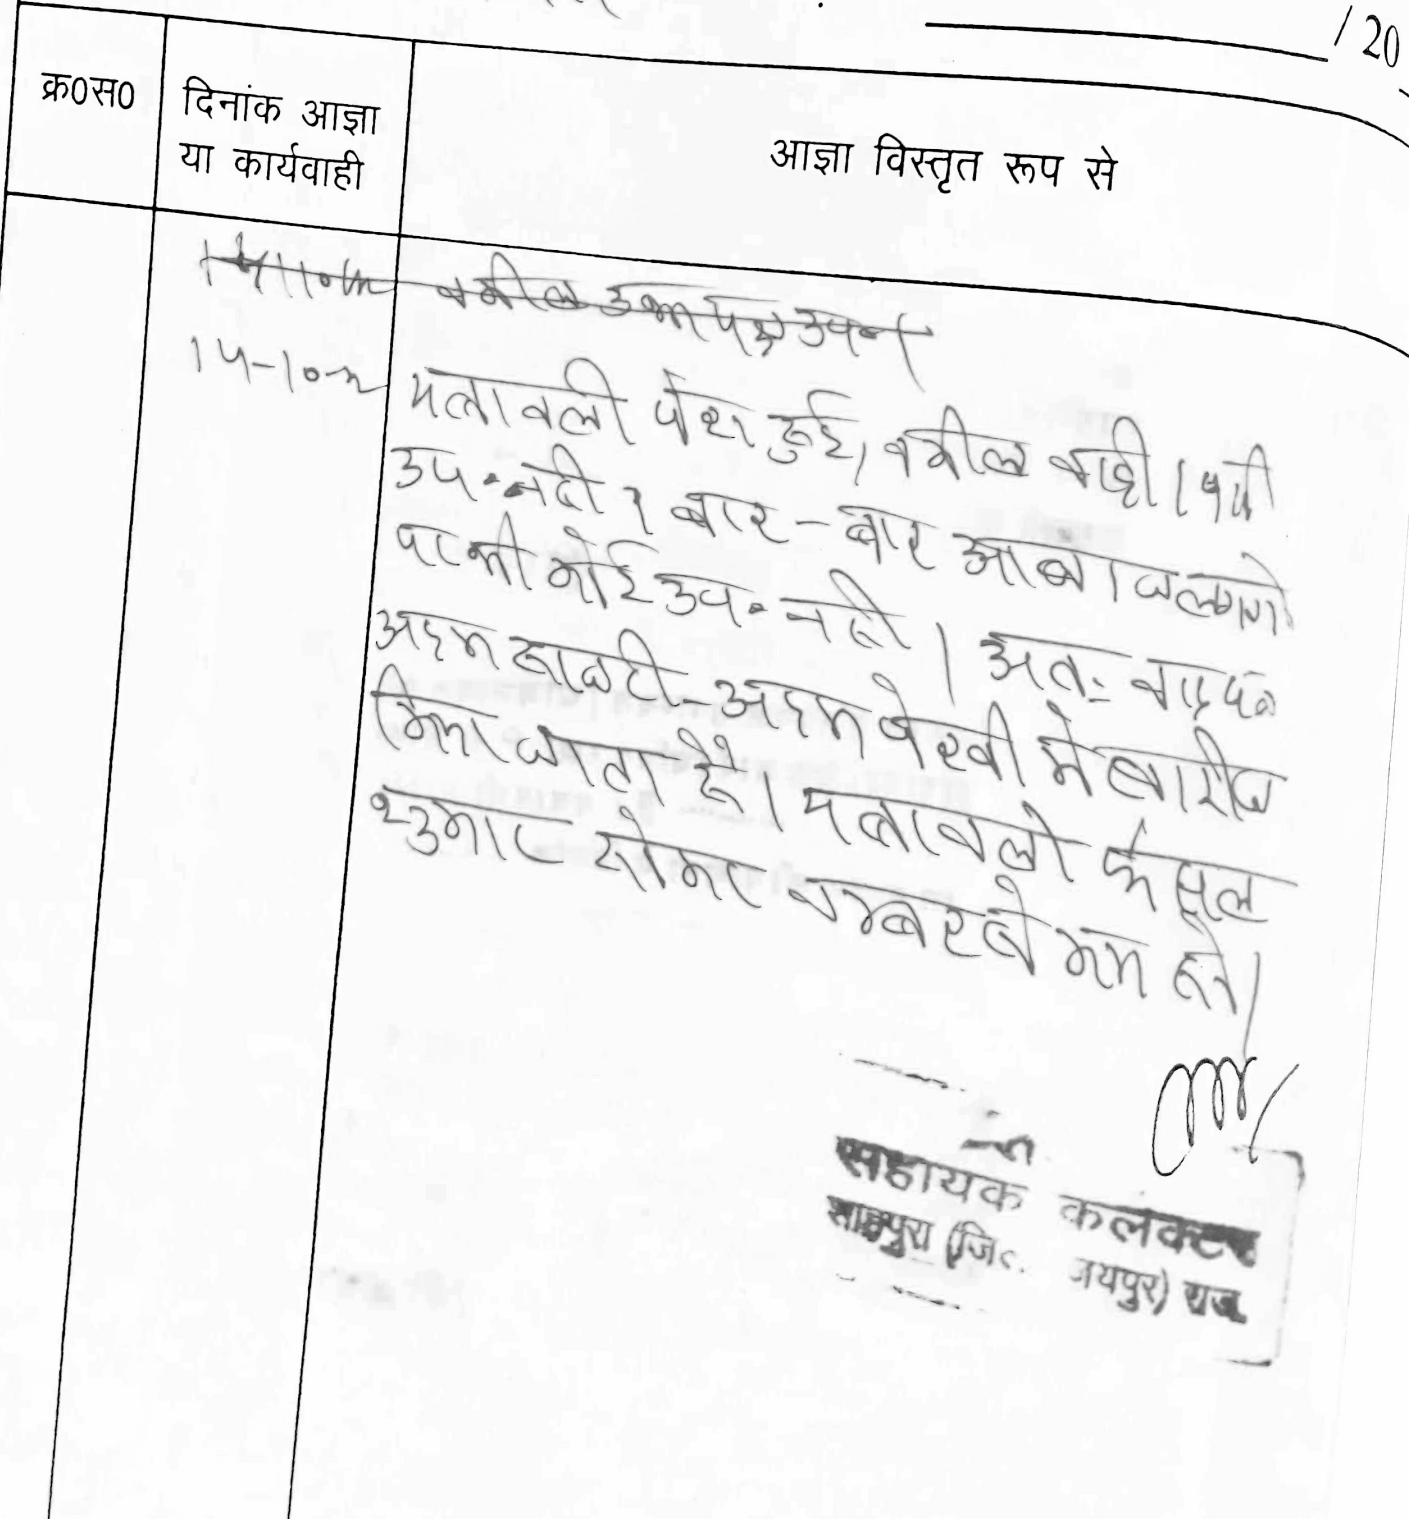 / 20
क्र0स0
दिनांक आज्ञा
या कार्यवाही
आज्ञा विस्तृत रूप से
वकील उभयपक्ष उप॰।
पत्रावली पेश हुई, वकील वादी।
उप॰ नही। बार-बार आवाज
कोई उप॰ नही। अतः वाद पत्र
अदम हाजरी-अदम पेरवी मे खारीज
किया जाता है। पत्रावली फैसल
शुमार होकर नम्बर से कम हो।
सहायक कलक्टर
शाहपुरा (जि॰ जयपुर) राज.